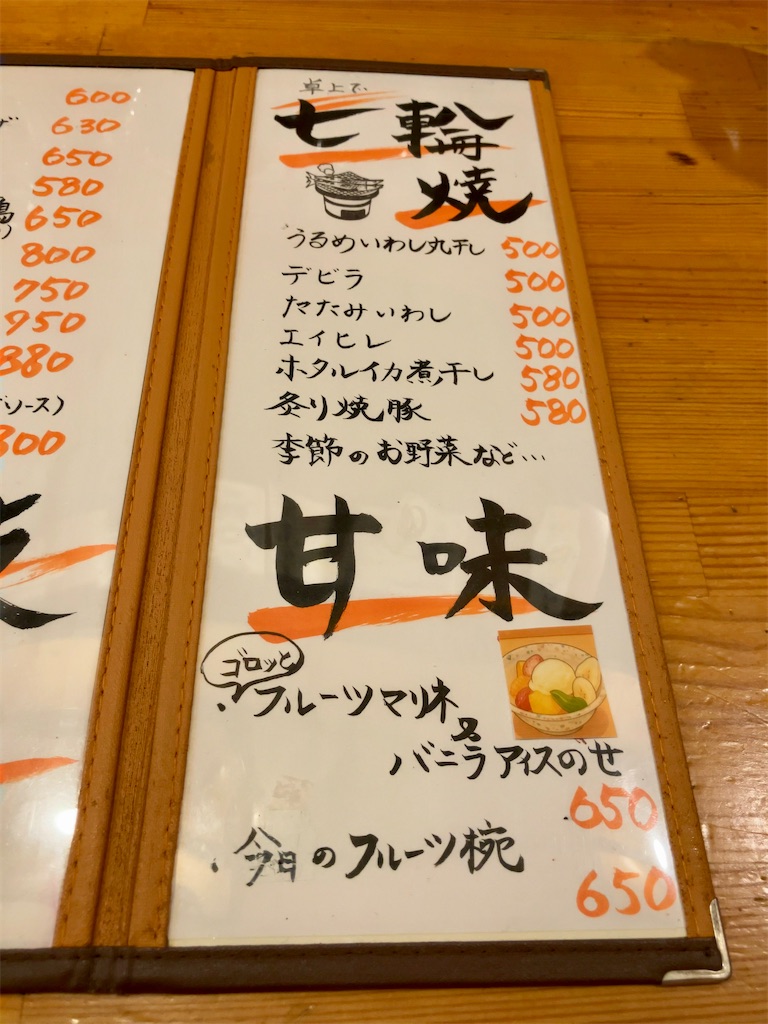 600
630
650
580
650
800
750
950
880
ソース)
800
卓上で
七輪
焼
うるめいわし丸干し 500
デビラ 500
たたみいわし 500
エイヒレ 500
ホタルイカ煮干し 580
炙り焼豚 580
季節のお野菜など…
甘味
ゴロッと
・フルーツマリネ
又
バニラアイスのせ
650
・今日のフルーツ椀
650